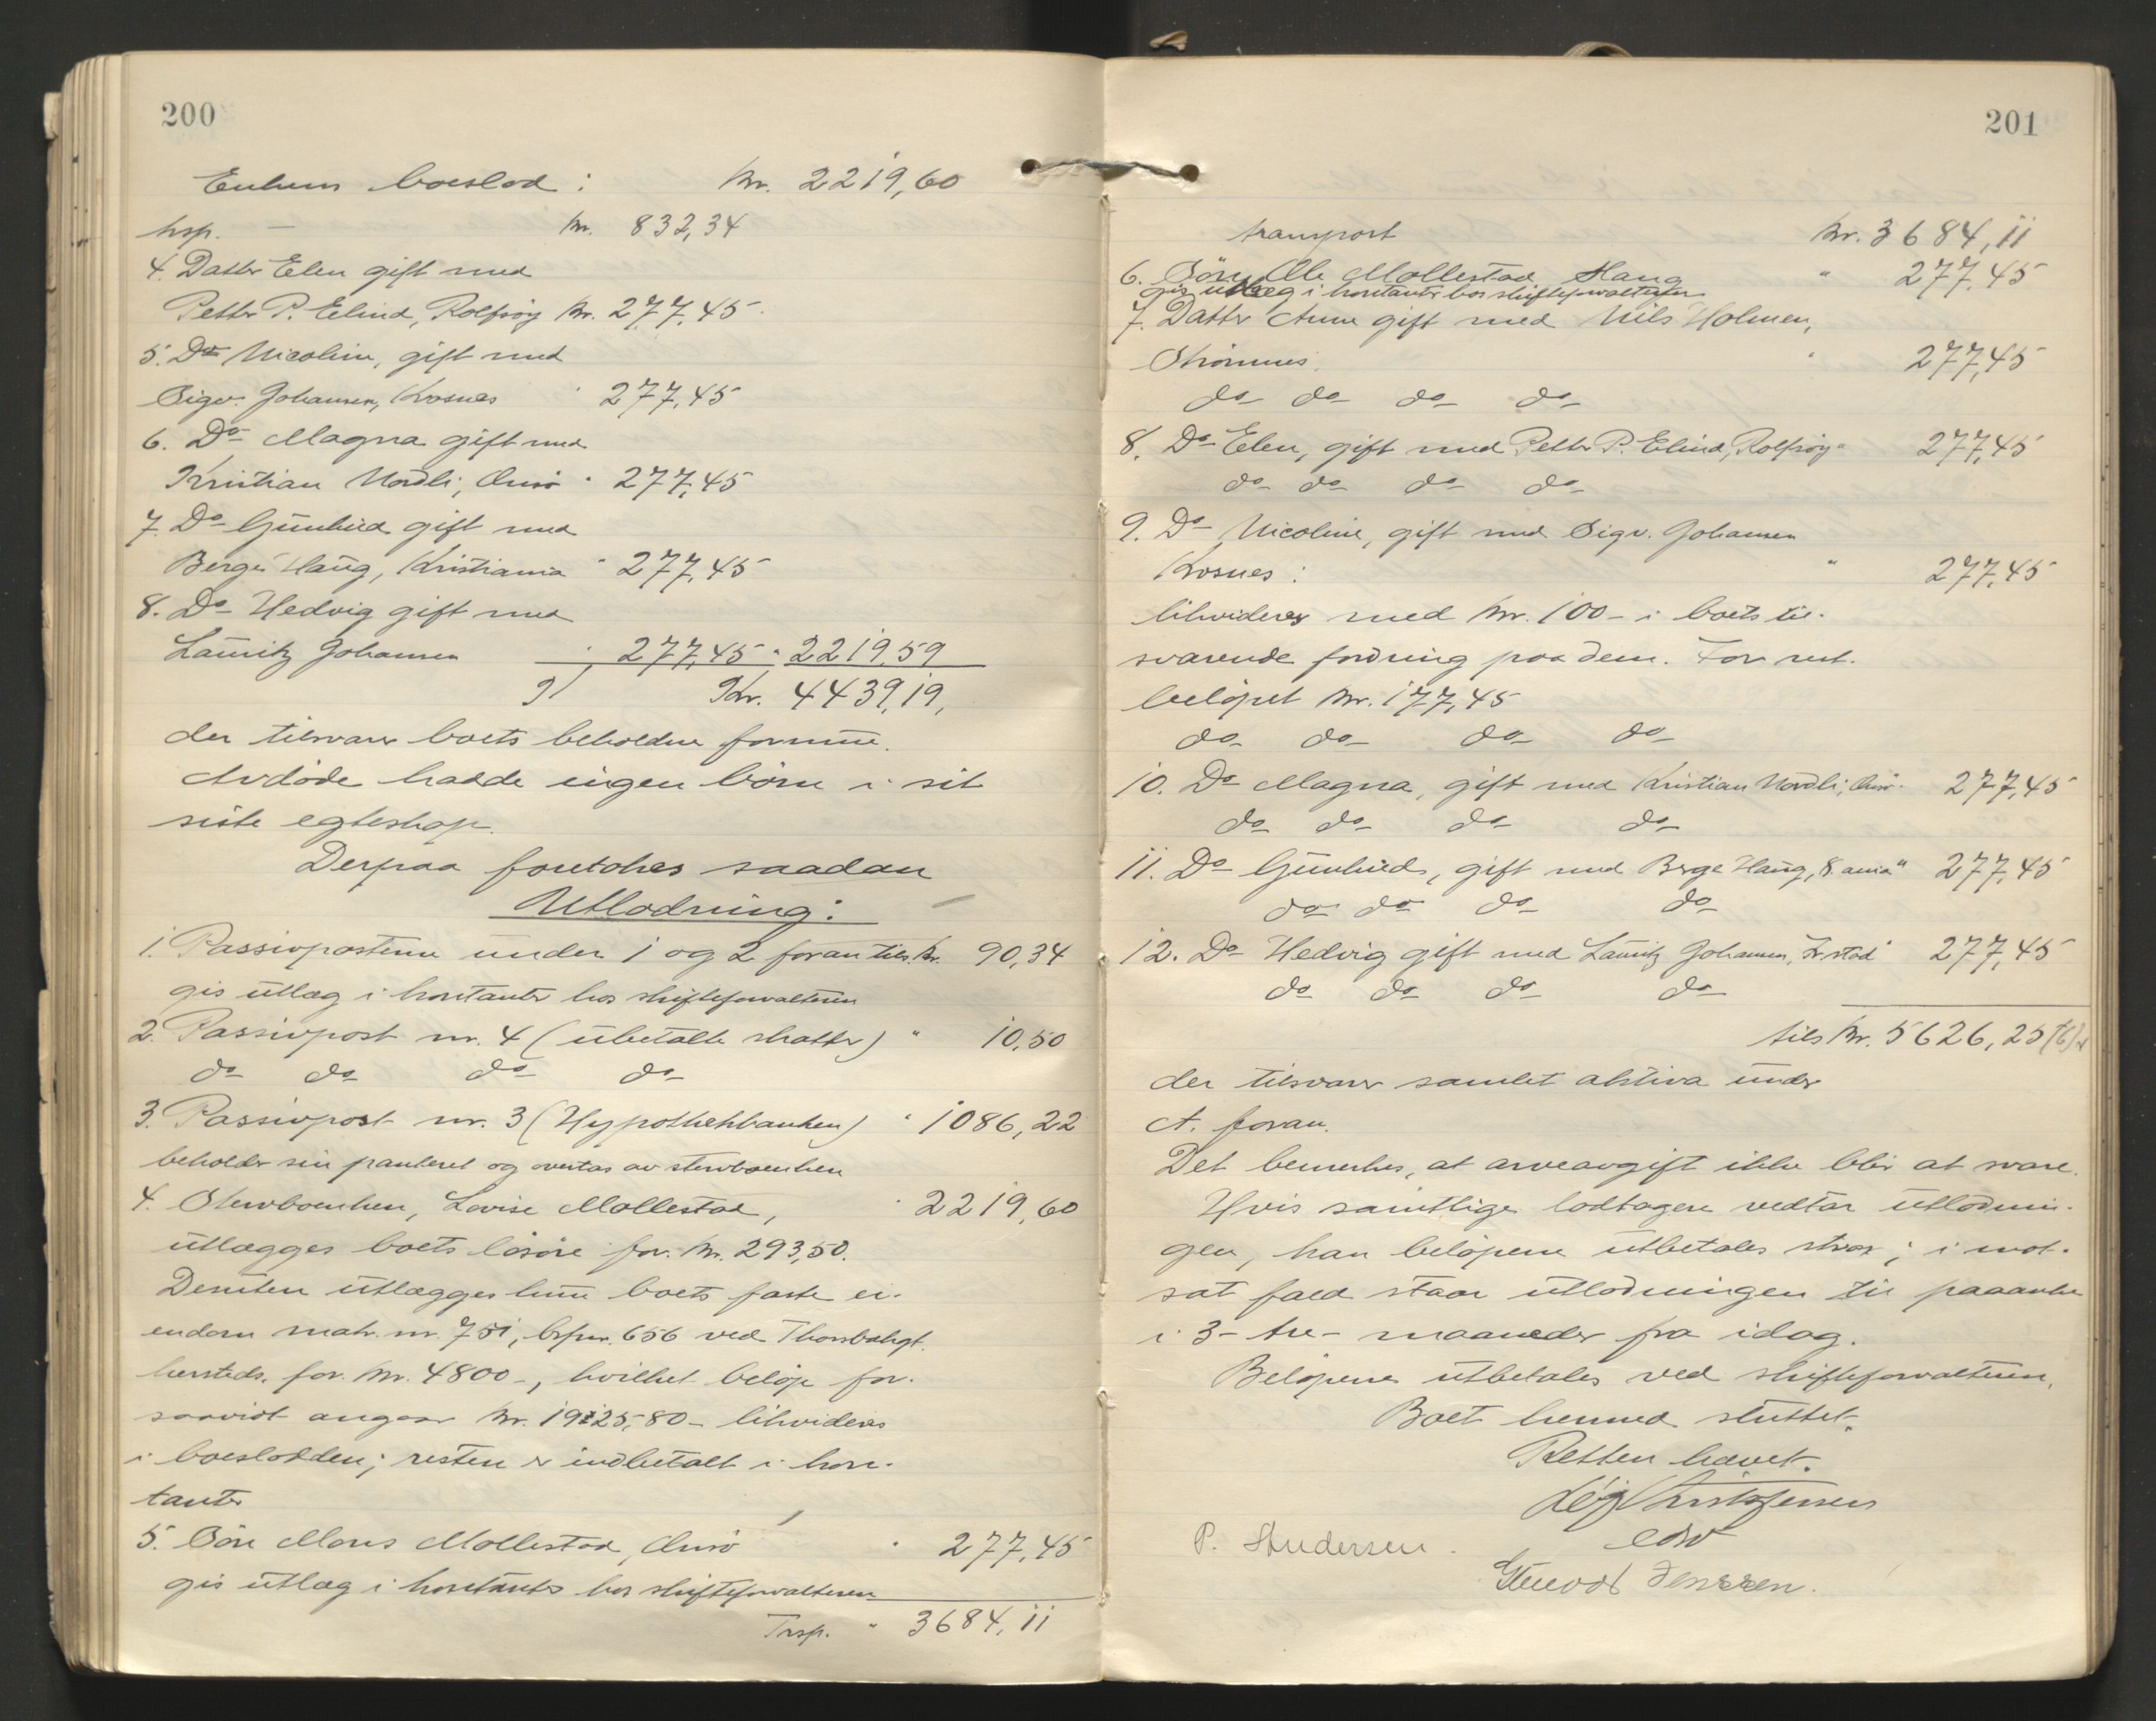 200
Enkens boeslod: Kr. 2219,60
trsp. — Kr. 832,34
4. Datter Elen gift med
Petter P. Elind, Rolfsøy Kr. 277,45
5. Do Nicoline, gift med
Sigv. Johansen, Krosnes " 277,45
6. Do Magna gift med
Kristian Nordli, Onsö " 277,45
7. Do Gunhild gift med
Berge Haug, Kristiania " 277,45
8. Do Hedvig gift med
Lauritz Johansen " 277,45 " 2219,59
Kr. 4439,19,
der tilsvarer boets beholdne formue.
Avdöde hadde ingen börn i sit
siste egteskap.
Derpaa foretokes saadan
Utlodning:
1. Passivposterne under 1 og 2 foran tils. kr. 90,34
gis utlæg i kontanter hos skifteforvalteren
2. Passivpost nr. 4 (ubetalte skatter) " 10,50
do do do do
3. Passivpost nr. 3 (Hypothekbanken) " 1086,22
beholder sin panteret og overtas av stervboenken
4. Stervboenken, Lovise Mollestad, " 2219,60
utlægges boets lösöre for kr. 293,50.
Desuten utlægges hun boets faste ei-
endom matr. nr. 751, brpnr. 656 ved Thorsbakgt.
hersteds. for kr. 4800-, hvilket belöp for-
saavidt angaar kr. 1925,80- likvideres
i boeslodden; resten er indbetalt i kon-
tanter
5. Sön Mons Mollestad, Onsö " 277,45
gis utlæg i kontanter hos skifteforvalteren
Trsp. " 3684,11
201
transport kr. 3684,11
6. Sön Ole Mollestad Haug " 277,45
gis utlæg i kontanter hos skifteforvalteren
7. Datter Anne gift med Nils Holmen,
Strömnes. " 277,45
do do do do
8. Do Elen, gift med Petter P. Elind, Rolfsöy " 277,45
do do do do
9. Do Nicoline, gift med Sigv. Johansen
Krosnes: " 277,45
likvideres med kr. 100- i boets til-
svarende fordring paa dem. For rest-
belöpet kr. 177,45
do do do do
10. Do Magna, gift med Kristian Nordli, Onsö. 277,45
do do do do
11. Do Gunhild, gift med Berge Haug, Kr.ania " 277,45
do do do do
12. Do Hedvig gift med Lauritz Johansen, Fr.stad " 277,45
do do do do
tils kr. 5626,25 (6)
der tilsvarer samlet aktiva under
A. foran.
Det bemerkes, at arveavgift ikke blir at svare.
Hvis samtlige lodtagere vedtar utlodnin-
gen, kan belöpene utbetales strax; i mot-
sat fald staar utlodningen til paaanke
i 3- tre- maaneder fra idag.
Belöpene utbetales ved skifteforvalteren.
Boet hermed sluttet.
Retten hævet.
Leif Kristoffersen
edsv
P. Andersen.